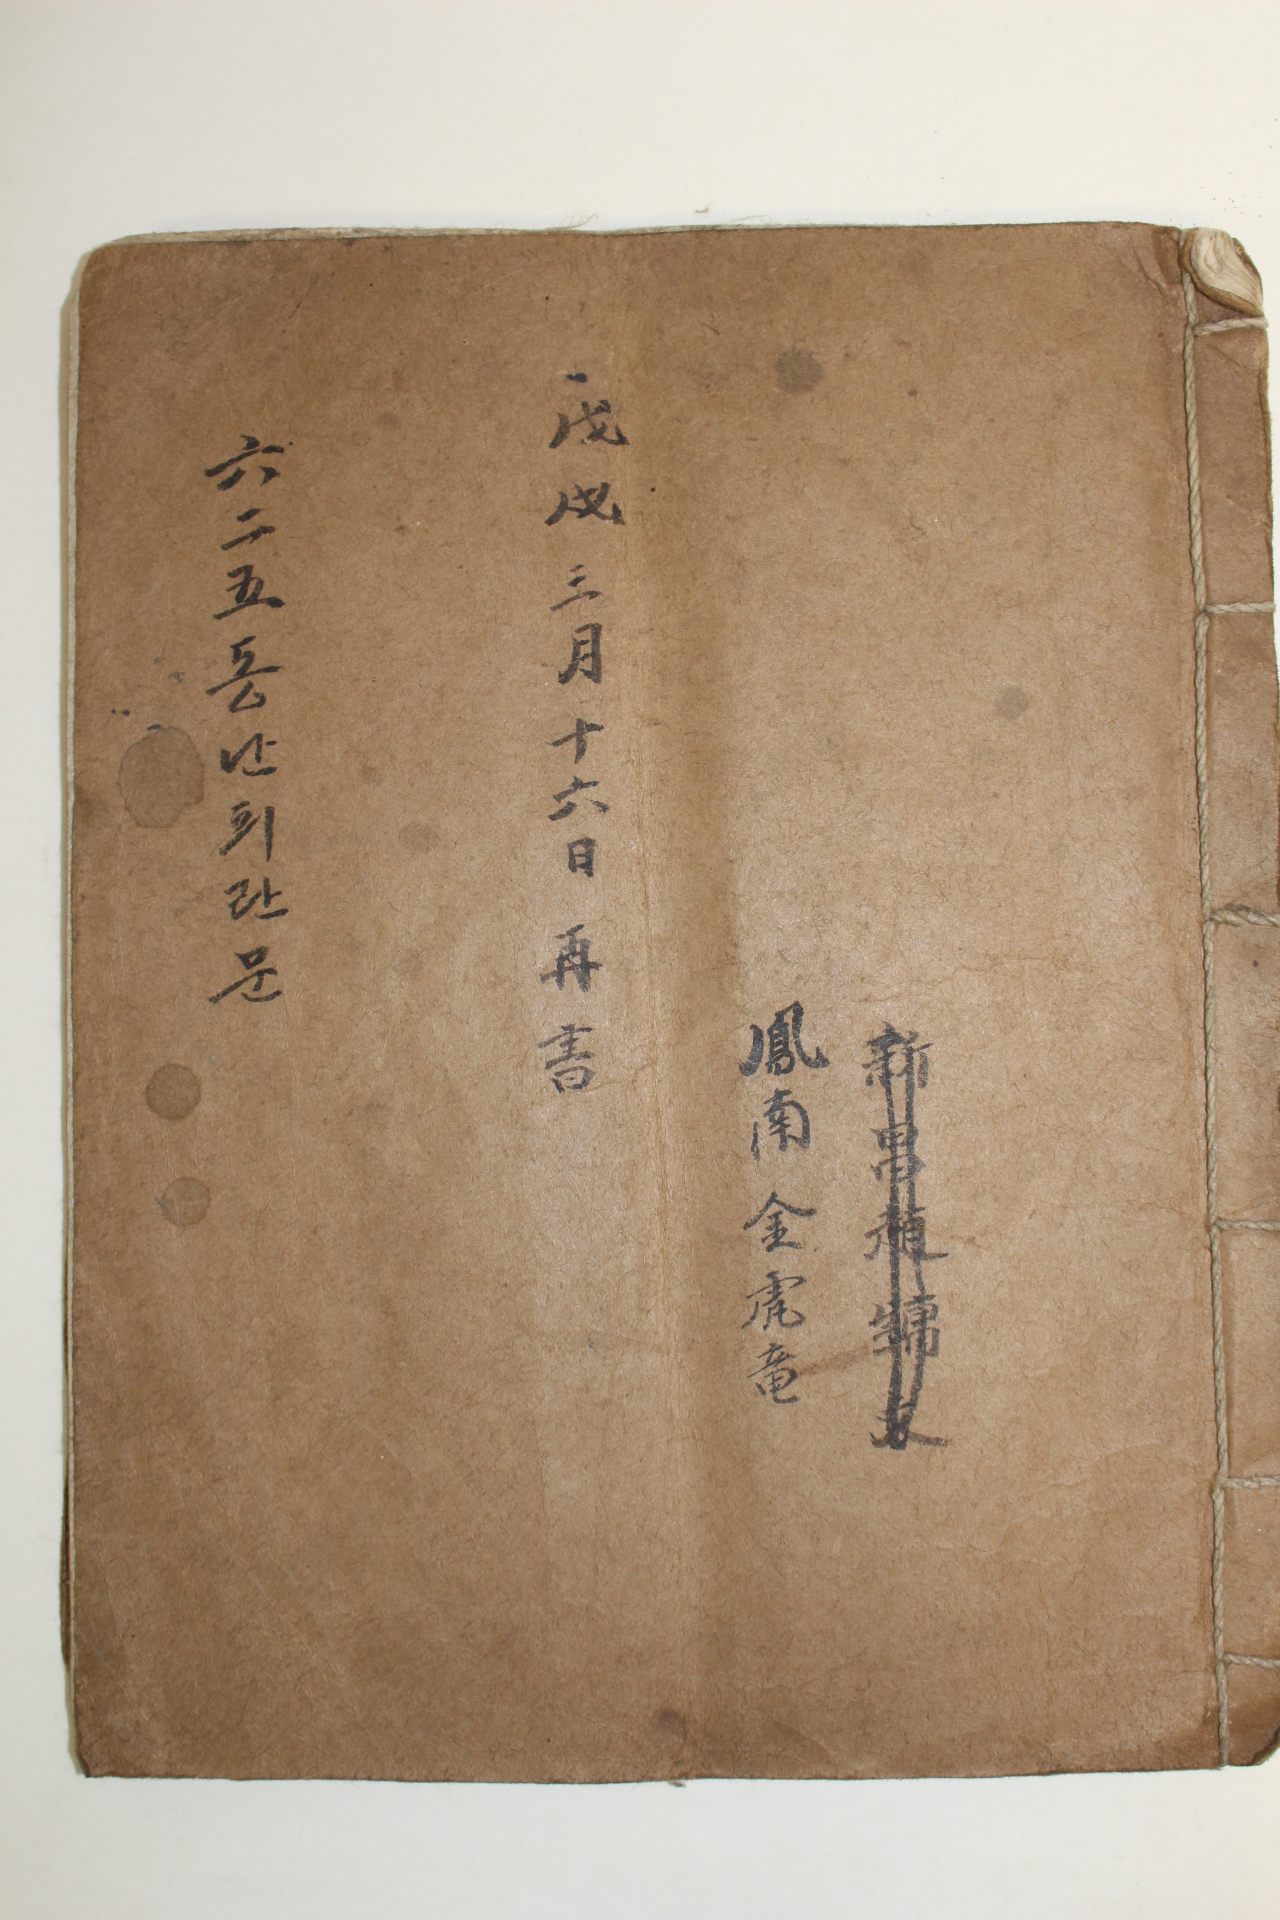 新昌
鳳南金虎竜
戊戌三月十六日再書
六二五동난피란문